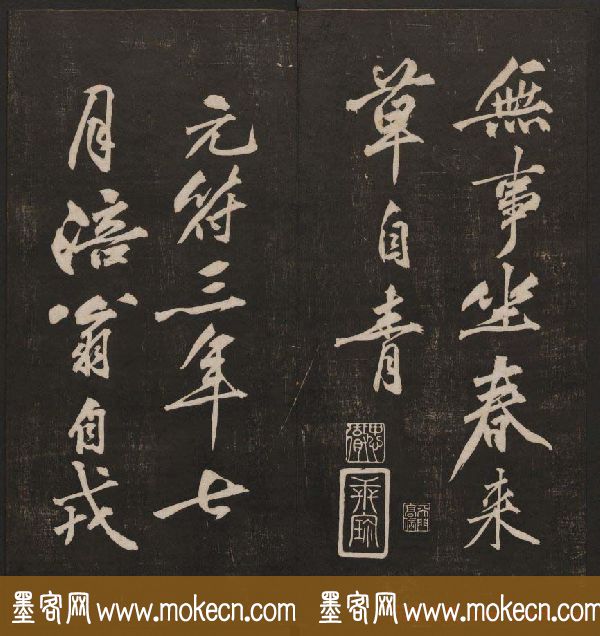 無事坐春来
草自青
元符三年七
月涪翁自戎
墨客网 www.mokecn.com 墨客网 www.mokecn.com